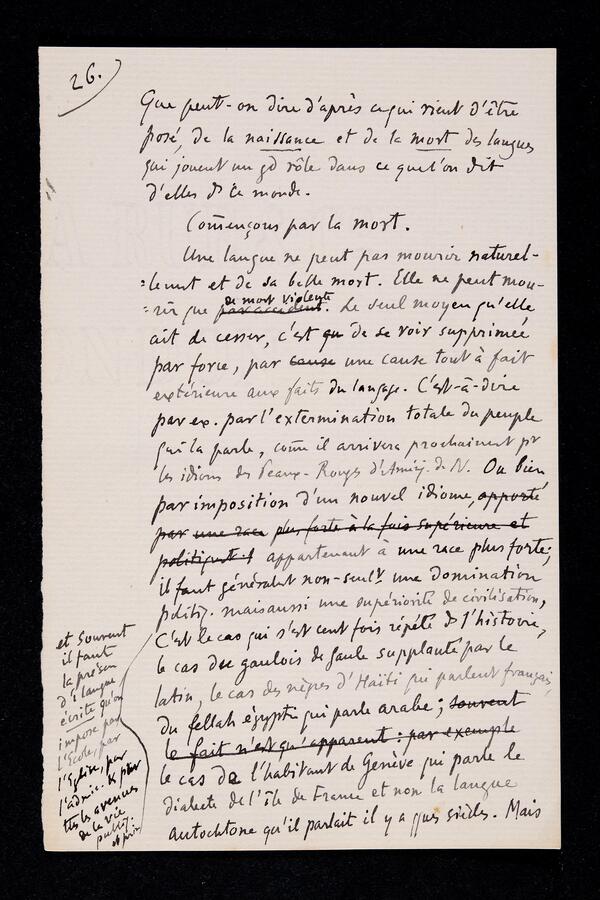 26.
Que peut-on dire d'après ce qui vient d'être
posé, de la naissance et de la mort des langues
qui jouent un gd rôle dans ce que l'on dit
d'elles ds ce monde.
Començons par la mort.
Une langue ne peut pas mourir naturel-
=lemnt et de sa belle mort. Elle ne peut mou-
=rir que par accident. de mort violente. Le seul moyen qu'elle
ait de cesser, c'est qu de se voir supprimée
par force, par cause une cause tout à fait
extérieure aux faits du langage. C'est-à-dire
par ex. par l'extermination totale du peuple
qui la parle, come il arrivera prochainement pr
les idioms des Peaux-Rouges d'Amériq. de N. Ou bien
par imposition d'un nouvel idiome, apporté
par une race plus forte à la fois supérieure et
politiquet. appartenant à une race plus forte;
il faut généralemt non-seult une domination
politiq. mais aussi une supériorité de civilisation,
C'est le cas qui s'est cent fois répété ds l'histoire,
le cas du gaulois de Gaule supplanté par le
latin, le cas des nègres d'Haïti qui parlent français,
du fellah égyptn qui parle arabe; souvent
le fait n'est qu'apparent : par exemple
le cas de l'habitant de Genève qui parle le
dialecte de l'île de France et non la langue
autochtone qu'il parlait il y a qques siècles. Mais
et souvent
il faut
la présen
d'1 langue
écrite qu'on
impose par
l'Ecole, par
l'Eglise, par
l'admin.
ttes les avenues
de la vie
publiq.
et priv